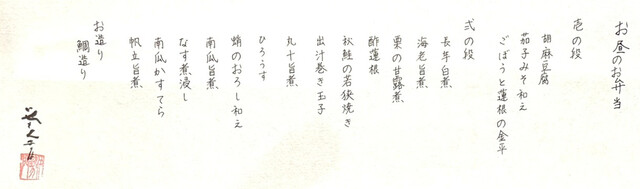 お昼のお弁当
壱の段
胡麻豆腐
茄子みそ和え
ごぼうと蓮根の金平
弐の段
長芋白煮
海老旨煮
栗の甘露煮
酢蓮根
秋鮭の若狭焼き
出汁巻き玉子
丸十旨煮
ひろうす
蛸のおろし和え
南瓜旨煮
なす煮浸し
南瓜かすてら
帆立旨煮
お造り
鯛造り